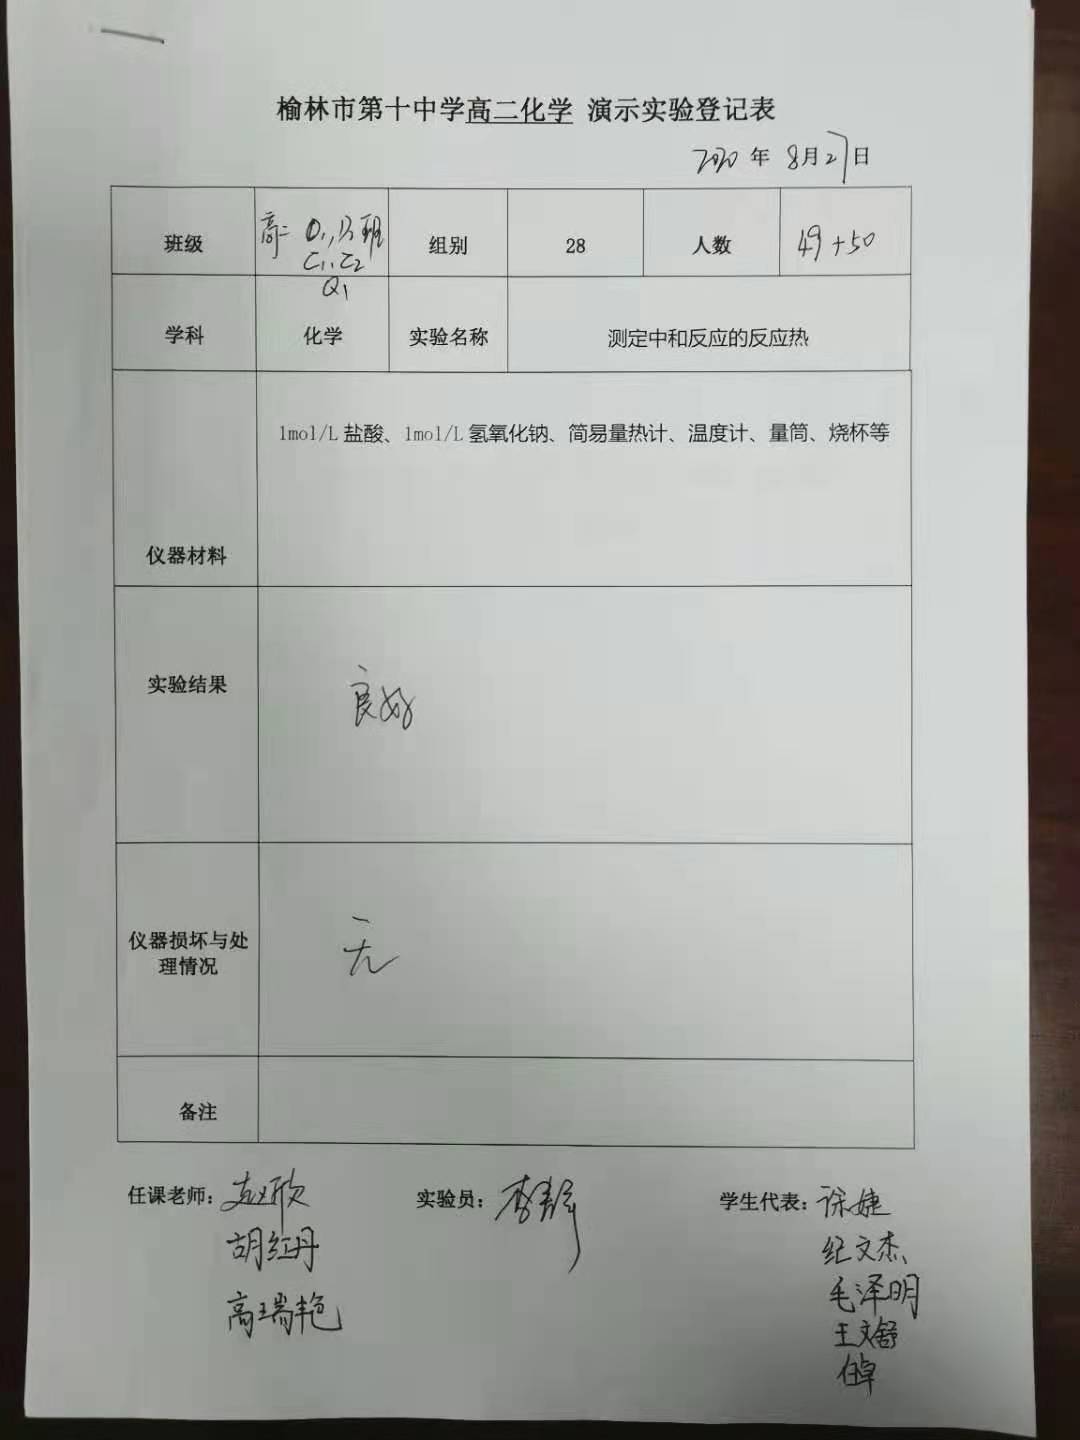 榆林市第十中学高二化学 演示实验登记表
2020 年 8月27日
班级 高二 组别 28 人数 49+50
C1、C2
Q1
学科 化学 实验名称 测定中和反应的反应热
1mol/L 盐酸、1mol/L 氢氧化钠、简易量热计、温度计、量筒、烧杯等
仪器材料
实验结果 良好
仪器损坏与处理情况 无
备注
任课老师：赵欣 实验员： 学生代表：徐婕
胡红丹 纪文杰
高瑞艳 毛泽明
王文舒
任卓